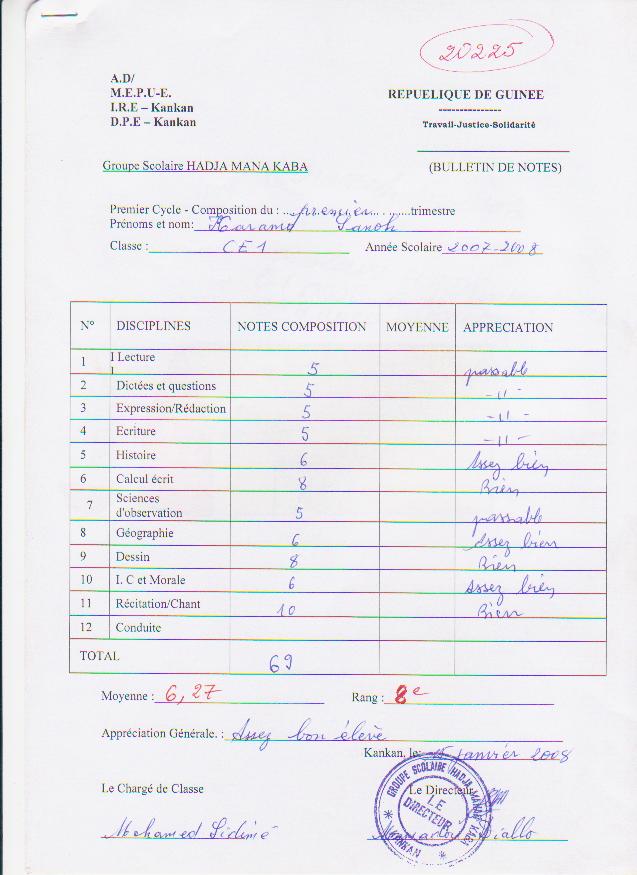 20225
A.D/
M.E.P.U-E.
I.R.E – Kankan
D.P.E – Kankan
REPUELIQUE DE GUINEE
---------------
Travail-Justice-Solidarité
Groupe Scolaire HADJA MANA KABA
(BULLETIN DE NOTES)
Premier Cycle - Composition du : ...premier... . .......trimestre
Prénoms et nom: Karamo Sanoh
Classe : CE1 Année Scolaire 2007-2008
N° DISCIPLINES NOTES COMPOSITION MOYENNE APPRECIATION
1 I Lecture 5 passable
2 Dictées et questions 5 -11-
3 Expression/Rédaction 5 -11-
4 Ecriture 5 -11-
5 Histoire 6 Assez bien
6 Calcul écrit 8 Bien
7 Sciences d'observation 5 passable
8 Géographie 6 Assez bien
9 Dessin 8 Bien
10 I. C et Morale 6 Assez bien
11 Récitation/Chant 10 Bien
12 Conduite
TOTAL 69
Moyenne : 6,27 Rang : 8e
Appréciation Générale. : Assez bon élève
Kankan, le: 15 Janvier 2008
Le Chargé de Classe Le Directeur
GROUPE SCOLAIRE HADJA MANAN KABA
LE DIRECTEUR
* KANKAN *
Mohamed Sidimé Diallo